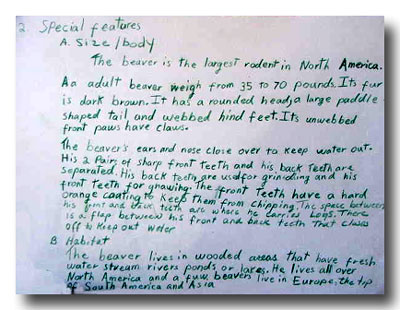 2. Special features
A. Size/body
The beaver is the largest rodent in North America.
Aa adult beaver weigh from 35 to 70 pounds. Its fur
is dark brown. It has a rounded head, a large paddle
shaped tail and webbed hind feet. Its unwebbed
front paws have claws.
The beaver's ears and nose close over to keep water out.
His 2 Pairs of sharp front teeth and his back teeth are
separated. His back teeth are used for grinding and his
front teeth for gnawing. The front teeth have a hard
orange coating to keep them from chipping. The space between
his front and back teeth are where he carries logs. There
is a flap between his front and back teeth that closes
off to keep out water
B Habitat
The beaver lives in wooded areas that have fresh
water stream rivers ponds or lakes. He lives all over
North America and a few beavers live in Europe, the tip
of South America and Asia